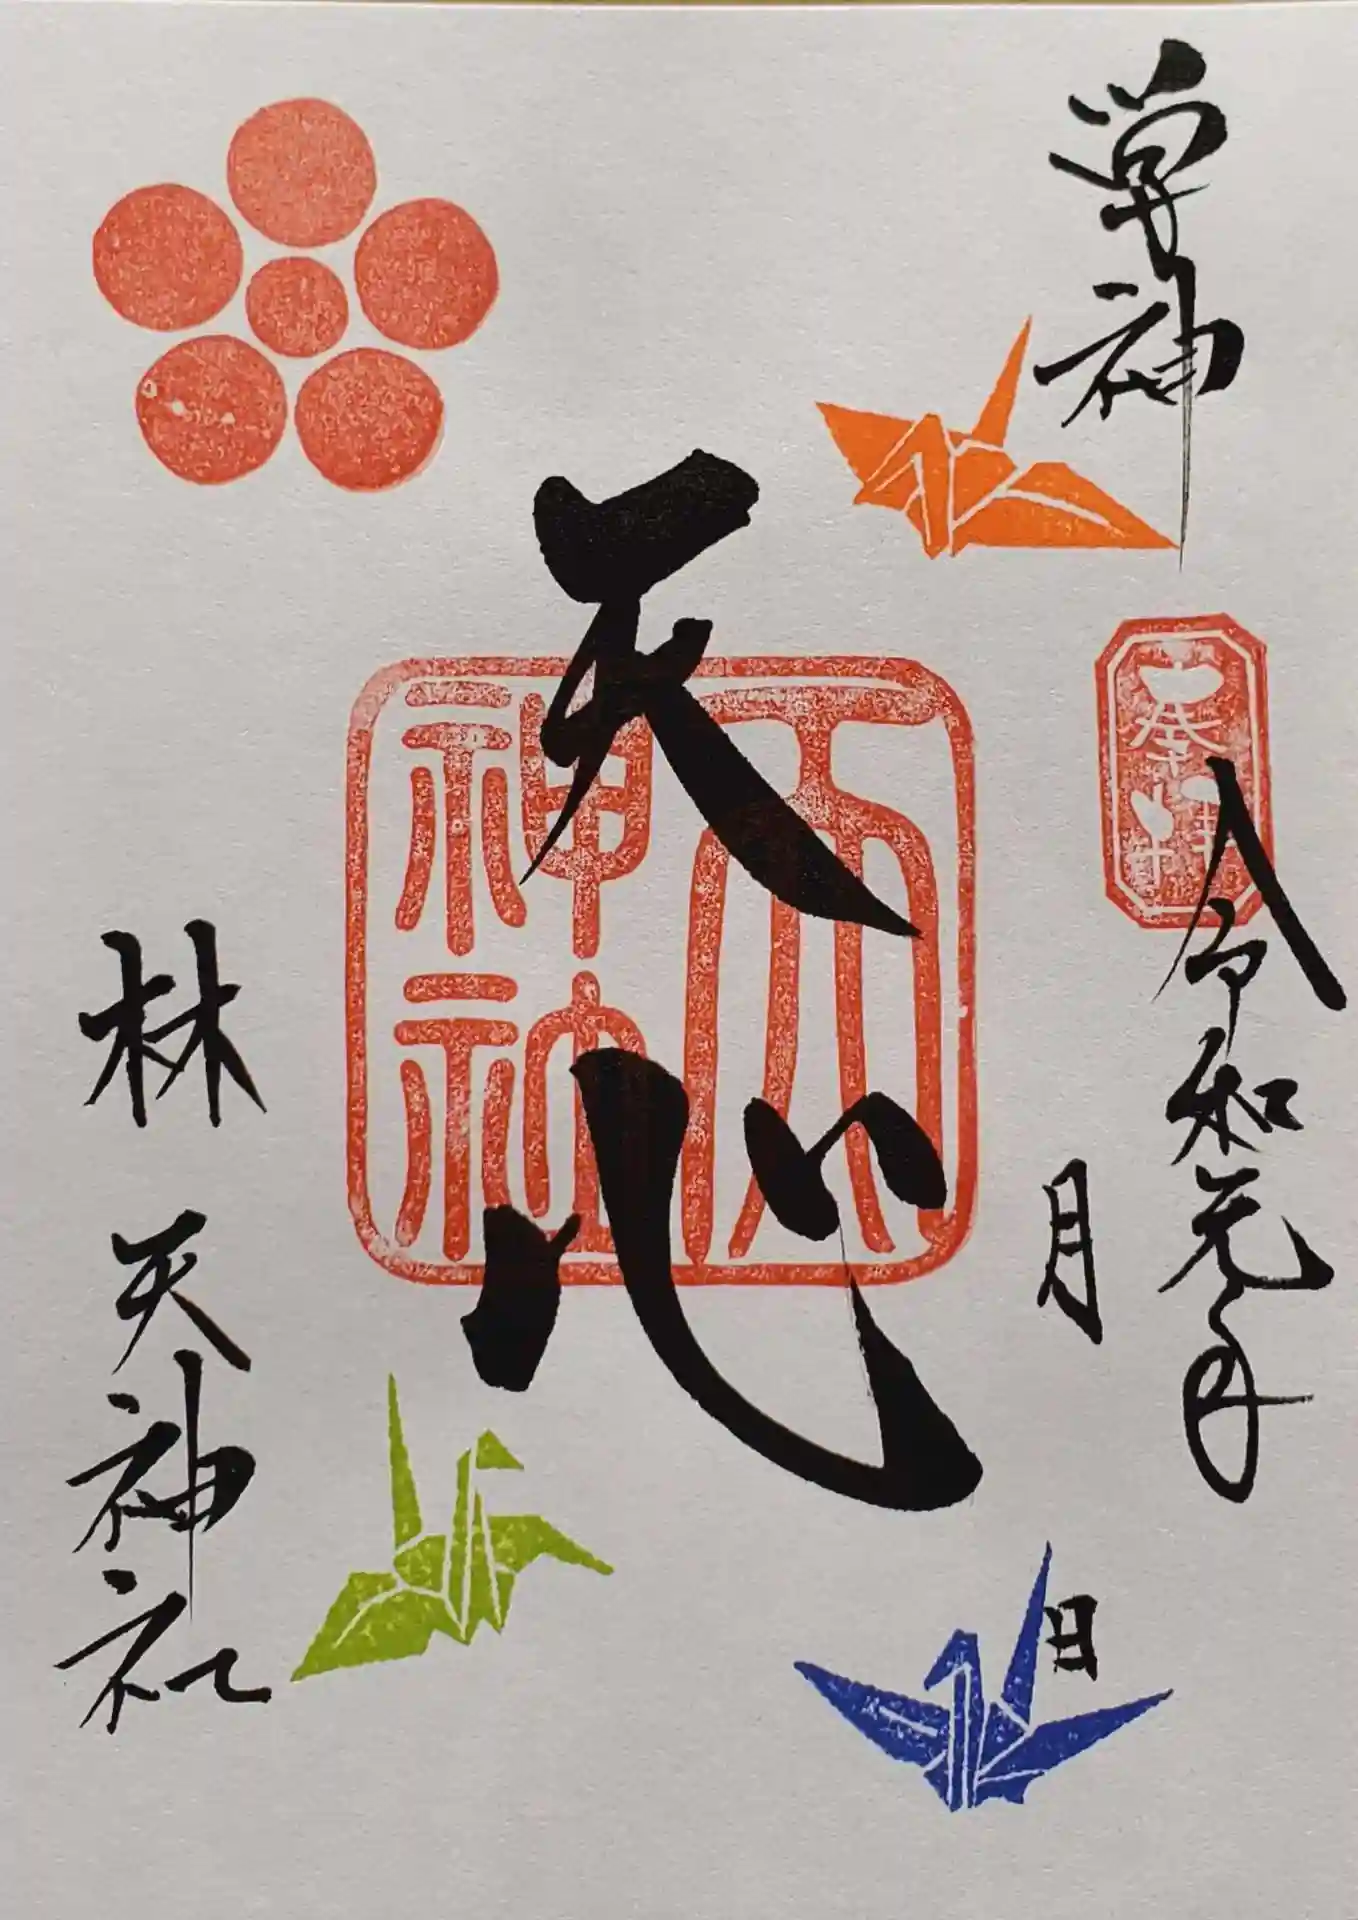 学神
奉拝
令和元年
月
日
天心
天神社
林天神社